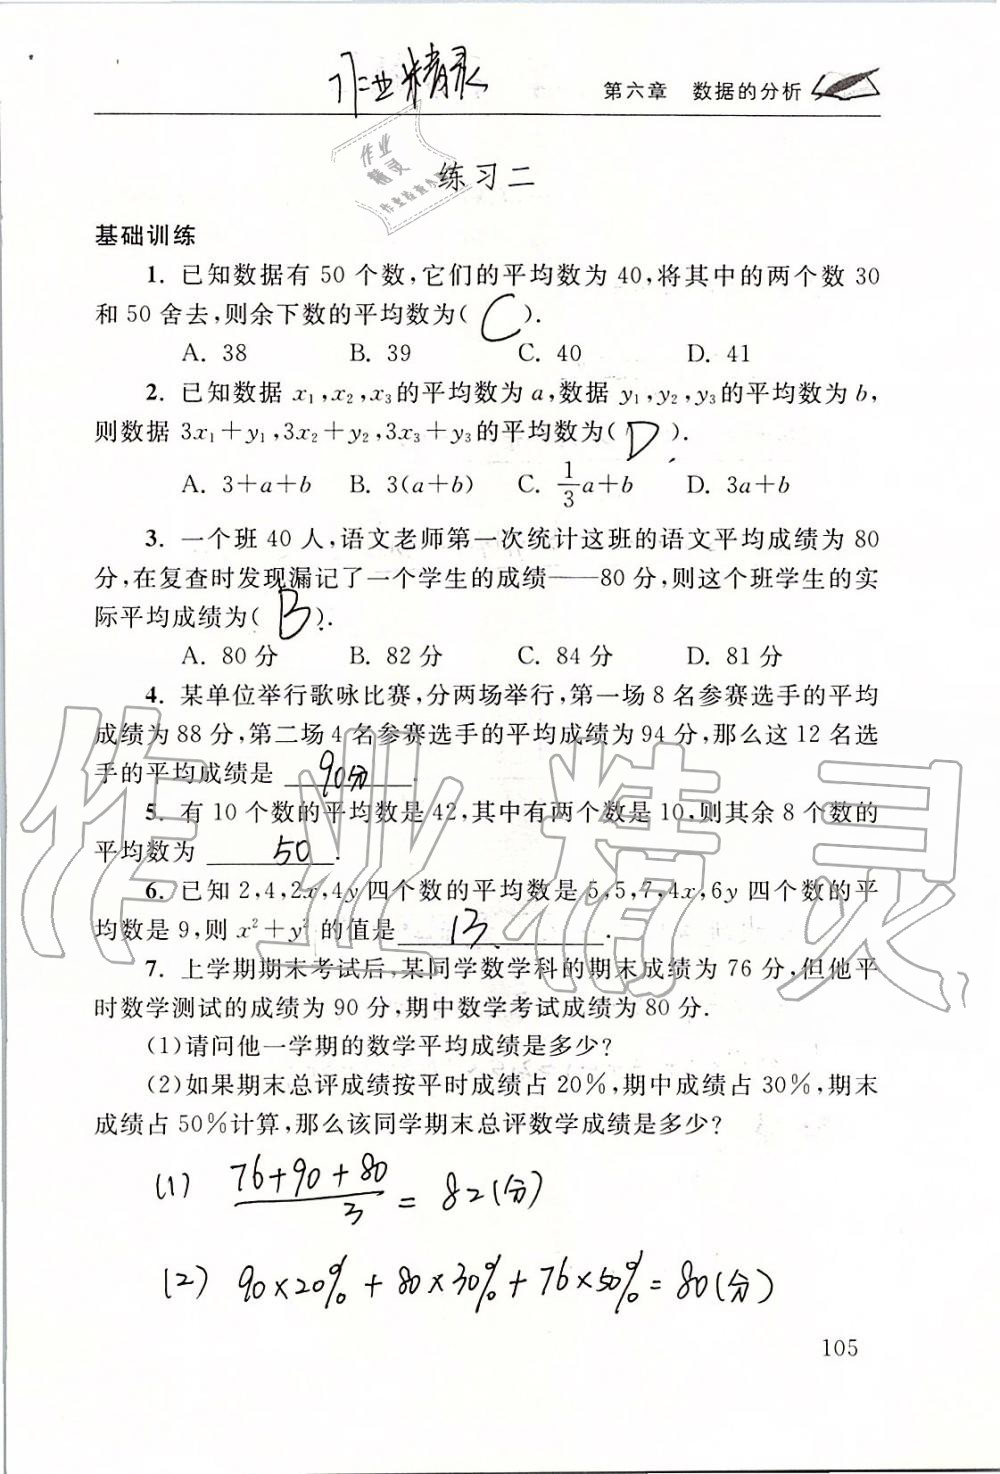 作业精灵
第六章 数据的分析
作业
精灵
练习二
基础训练
1. 已知数据有 50 个数,它们的平均数为 40,将其中的两个数 30
和 50 舍去,则余下数的平均数为( C ).
A. 38 B. 39 C. 40 D. 41
2. 已知数据 x₁,x₂,x₃的平均数为 a,数据 y₁,y₂,y₃的平均数为 b,
则数据 3x₁+y₁,3x₂+y₂,3x₃+y₃的平均数为( D ).
A. 3+a+b B. 3(a+b) C. 1/3a+b D. 3a+b
3. 一个班 40 人,语文老师第一次统计这班的语文平均成绩为 80
分,在复查时发现漏记了一个学生的成绩——80 分,则这个班学生的实
际平均成绩为( B ).
A. 80 分 B. 82 分 C. 84 分 D. 81 分
4. 某单位举行歌咏比赛,分两场举行,第一场 8 名参赛选手的平均
成绩为 88 分,第二场 4 名参赛选手的平均成绩为 94 分,那么这 12 名选
手的平均成绩是 90分 .
5. 有 10 个数的平均数是 42,其中有两个数是 10,则其余 8 个数的
平均数为 50 .
6. 已知 2,4,2x,4y 四个数的平均数是 5,5,7,4x,6y 四个数的平
均数是 9,则 x²+y² 的值是 13 .
7. 上学期期末考试后,某同学数学科的期末成绩为 76 分,但他平
时数学测试的成绩为 90 分,期中数学考试成绩为 80 分.
(1)请问他一学期的数学平均成绩是多少?
(2)如果期末总评成绩按平时成绩占 20%,期中成绩占 30%,期末
成绩占 50%计算,那么该同学期末总评数学成绩是多少?
(1) (76+90+80)/3 = 82(分)
(2) 90×20%+80×30%+76×50%=80(分)
105
作业精灵